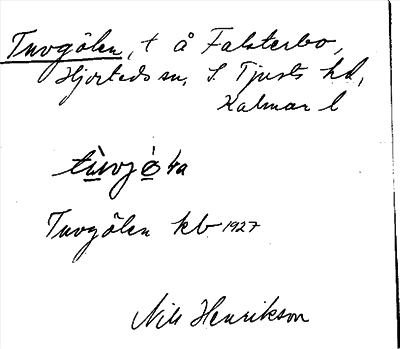 Tuvgölen, t å Falsterbo,
Hjorteds sn, S. Tjusts hd,
Kalmar l
Tuvgölen kb 1927
Nils Henrikson